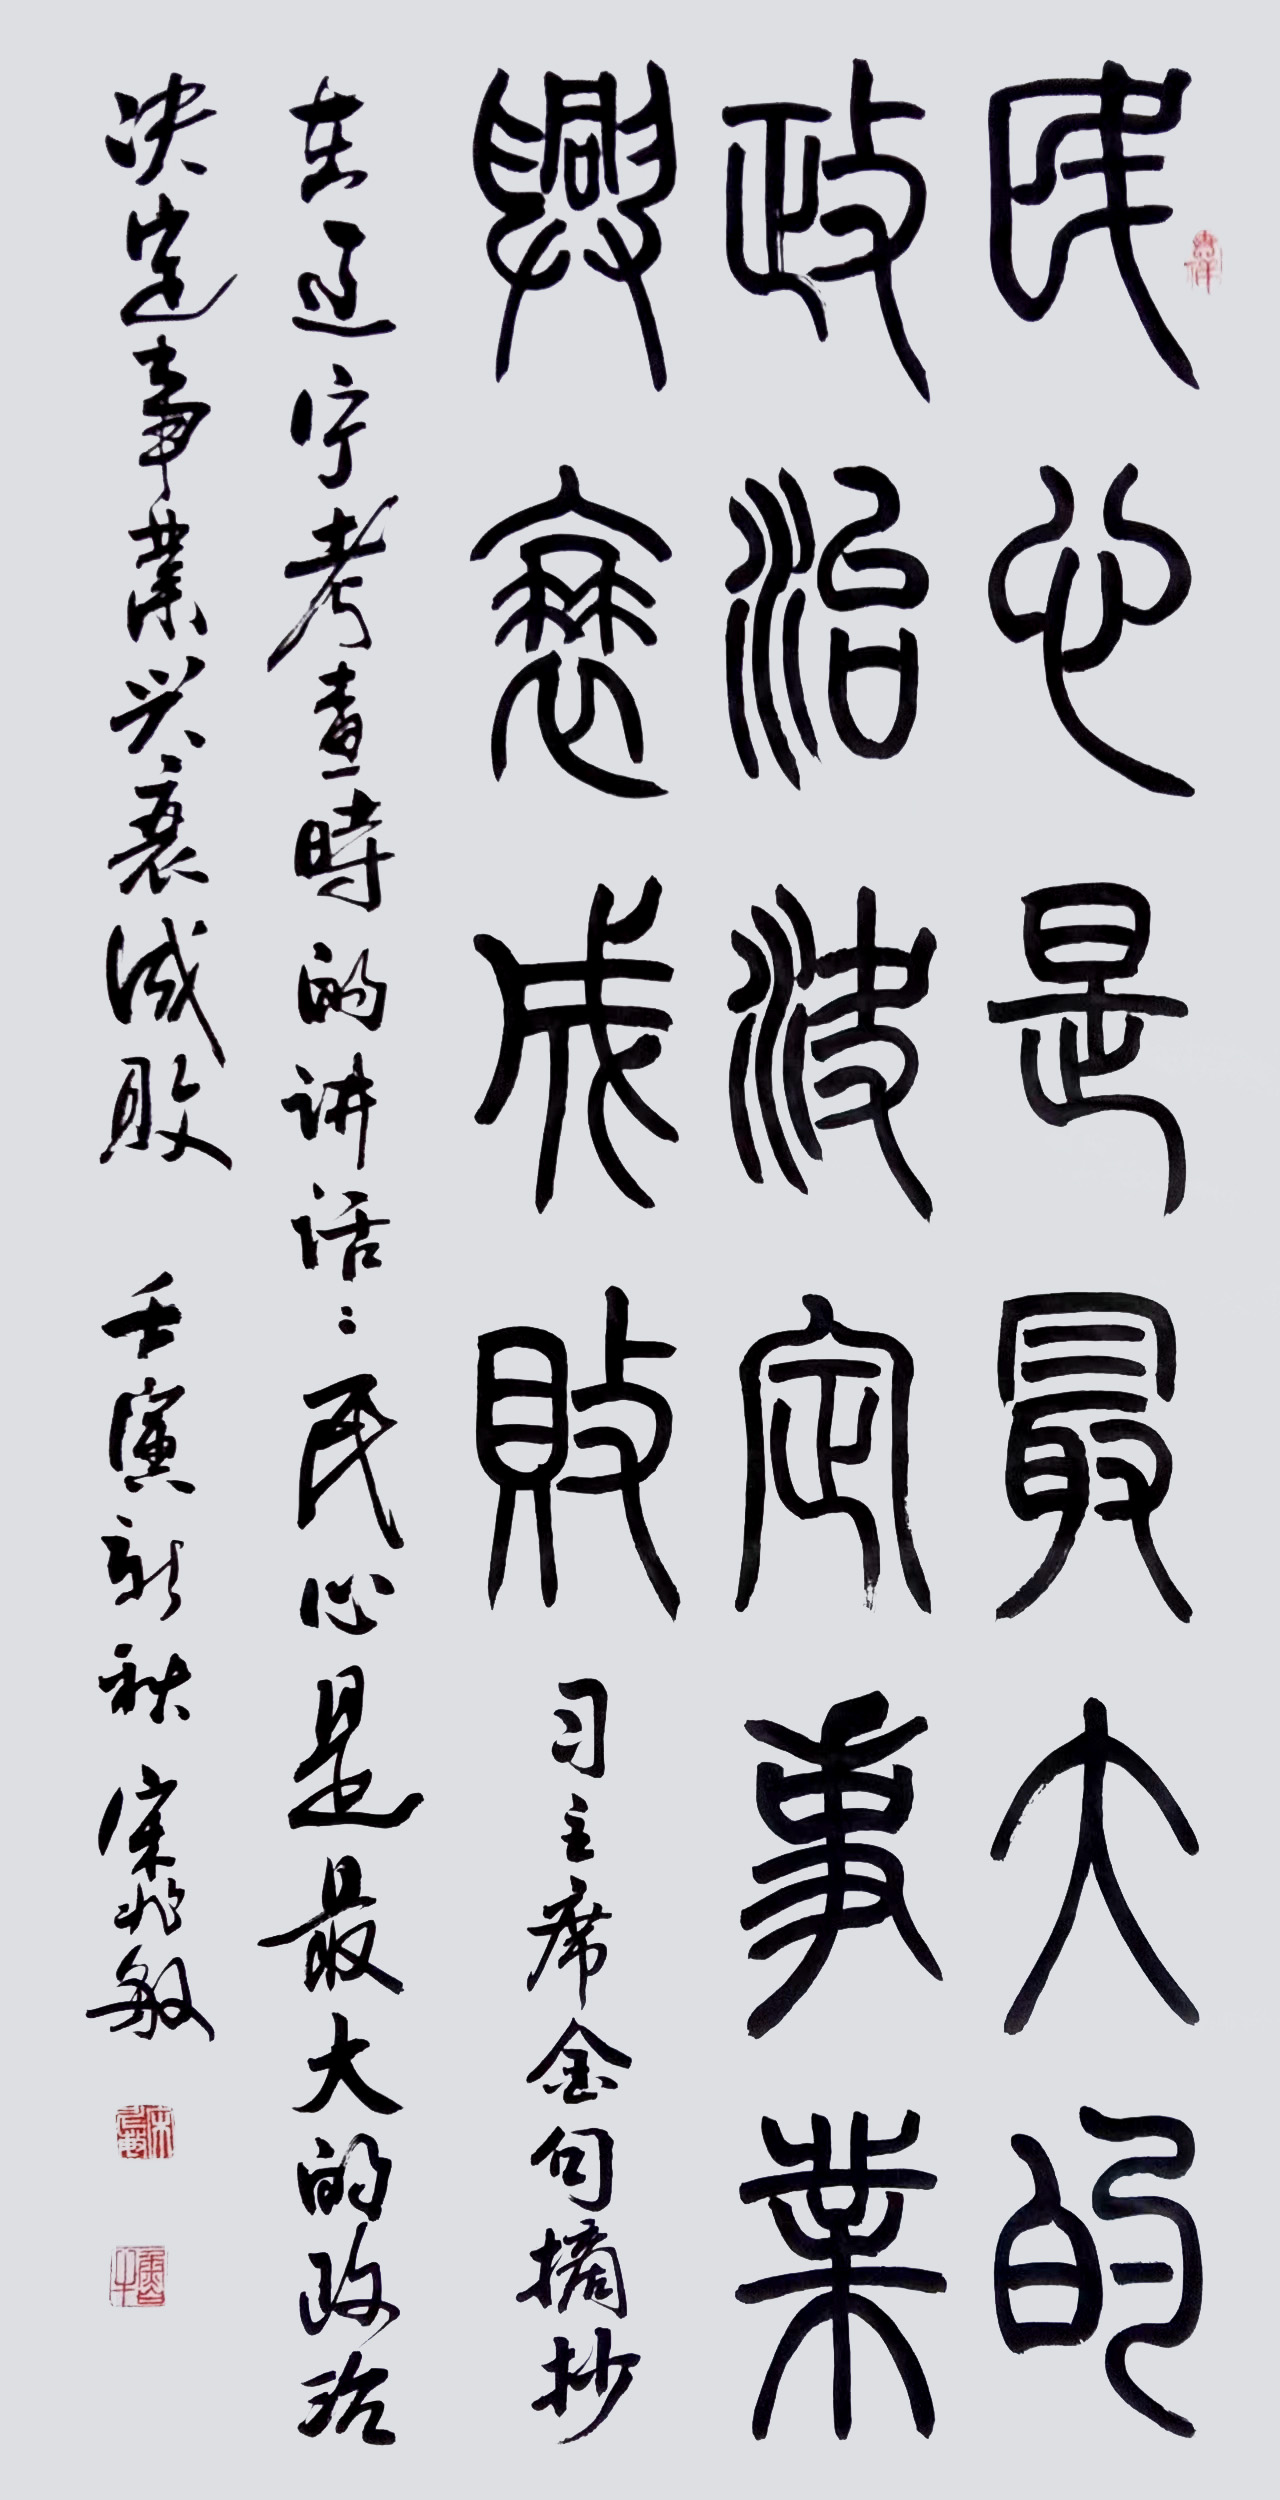 民心是最大的
政治決定事業
興衰成敗
习主席金句摘抄
在辽宁考查時的讲话：民心是最大的政治
决定事业兴衰成败 壬寅新秋 宋兆敏